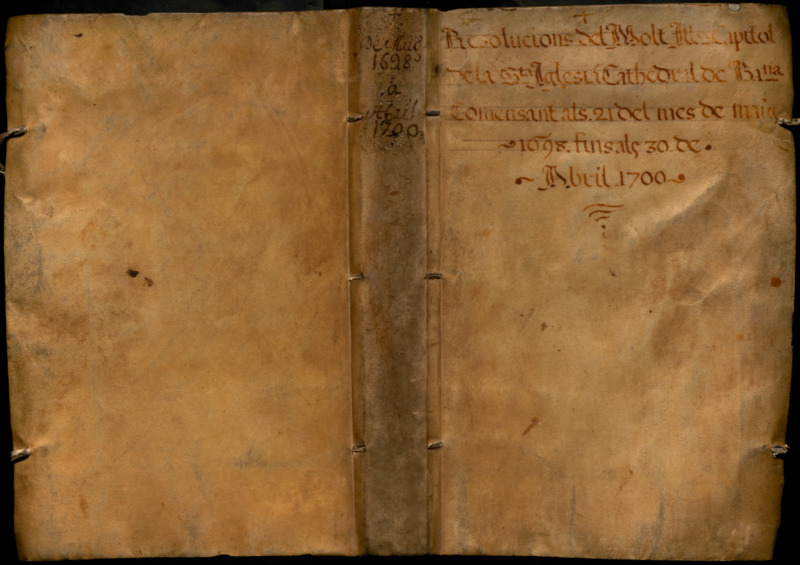 De Maig
1698
a
Abril
1700
Resolucions del Molt Iltre Capitol
de la Sta Iglesia Cathedral de Barna
Comensant als. 21 del mes de maig
1698. fins als 30. de
Abril 1700